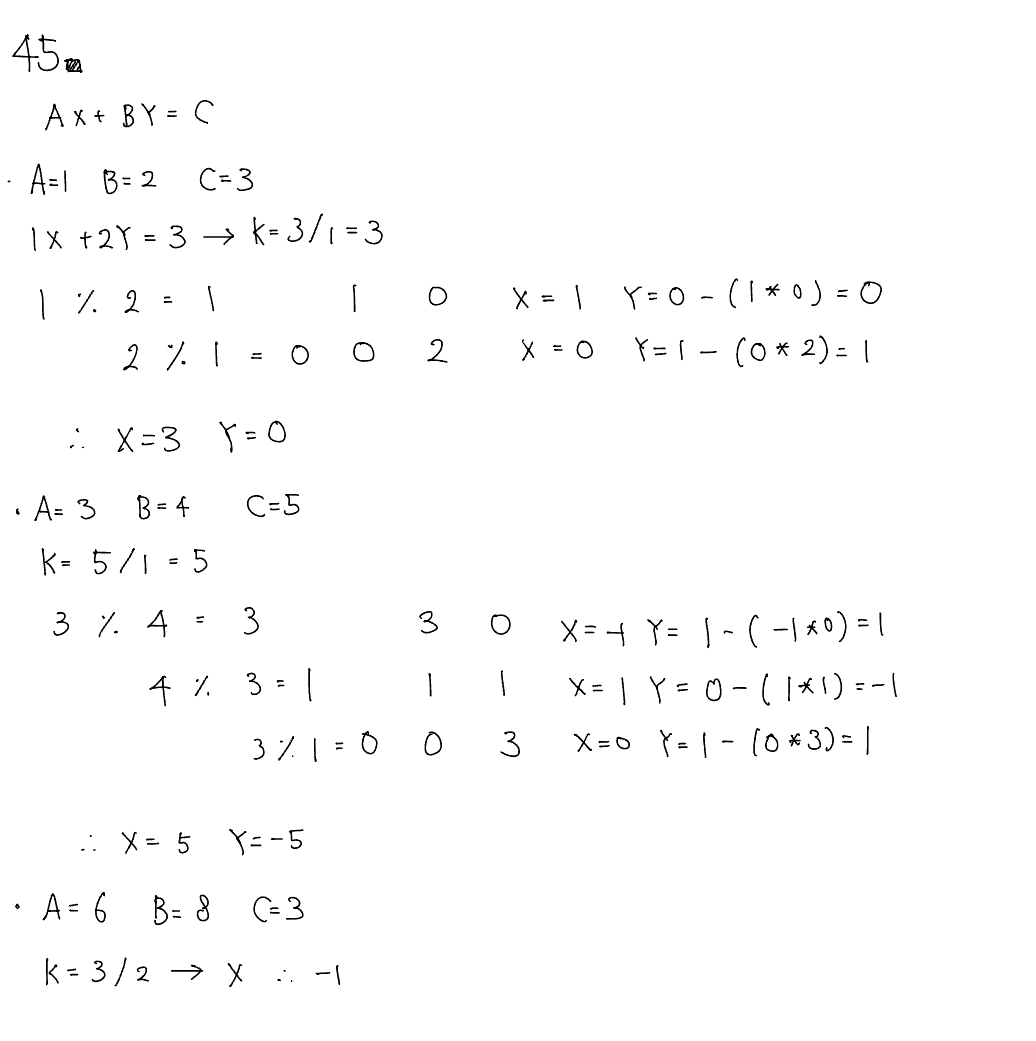 45
AX + BY = C
· A=1 B=2 C=3
1X +2Y = 3 → K=3/1=3
1 % 2 = 1 1 0 X = 1 Y=0-(1*0)=0
2 % 1 = 0 0 2 X = 0 Y=1-(0*2)=1
∴ X=3 Y=0
· A=3 B=4 C=5
K= 5/1 = 5
3 % 4 = 3 3 0 X=-1 Y= 1-(-1*0)=1
4 % 3 = 1 1 1 X=1 Y=0-(1*1)=-1
3 % 1 = 0 0 3 X=0 Y=1-(0*3)=1
∴ X= 5 Y=-5
· A=6 B=8 C=3
K=3/2 → X ∴ -1